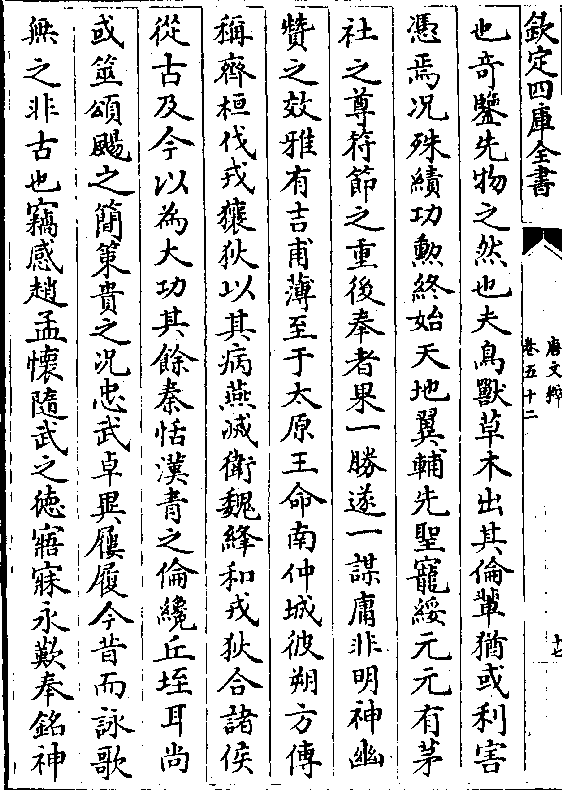 欽定四庫全書
唐文粹
卷五十二
十七
也奇鑒先物之然也夫鳥獸草木出其倫輩猶或利害
憑焉况殊績功勲終始天地翼輔先聖寵綏元元有茅
社之尊符節之重後奉者果一勝遂一謀庸非明神幽
贊之效雅有吉甫薄至于太原王命南仲城彼朔方傳
稱齊桓伐戎獲狄以其病燕滅衛魏絳和戎狄合諸侯
從古及今以為大功其餘秦恬漢青之倫纔丘垤耳尚
或筮頌颺之簡策貴之况忠武卓異屨履今昔而詠歌
無之非古也竊感趙孟懷隨武之徳寤寐永歎奉銘神